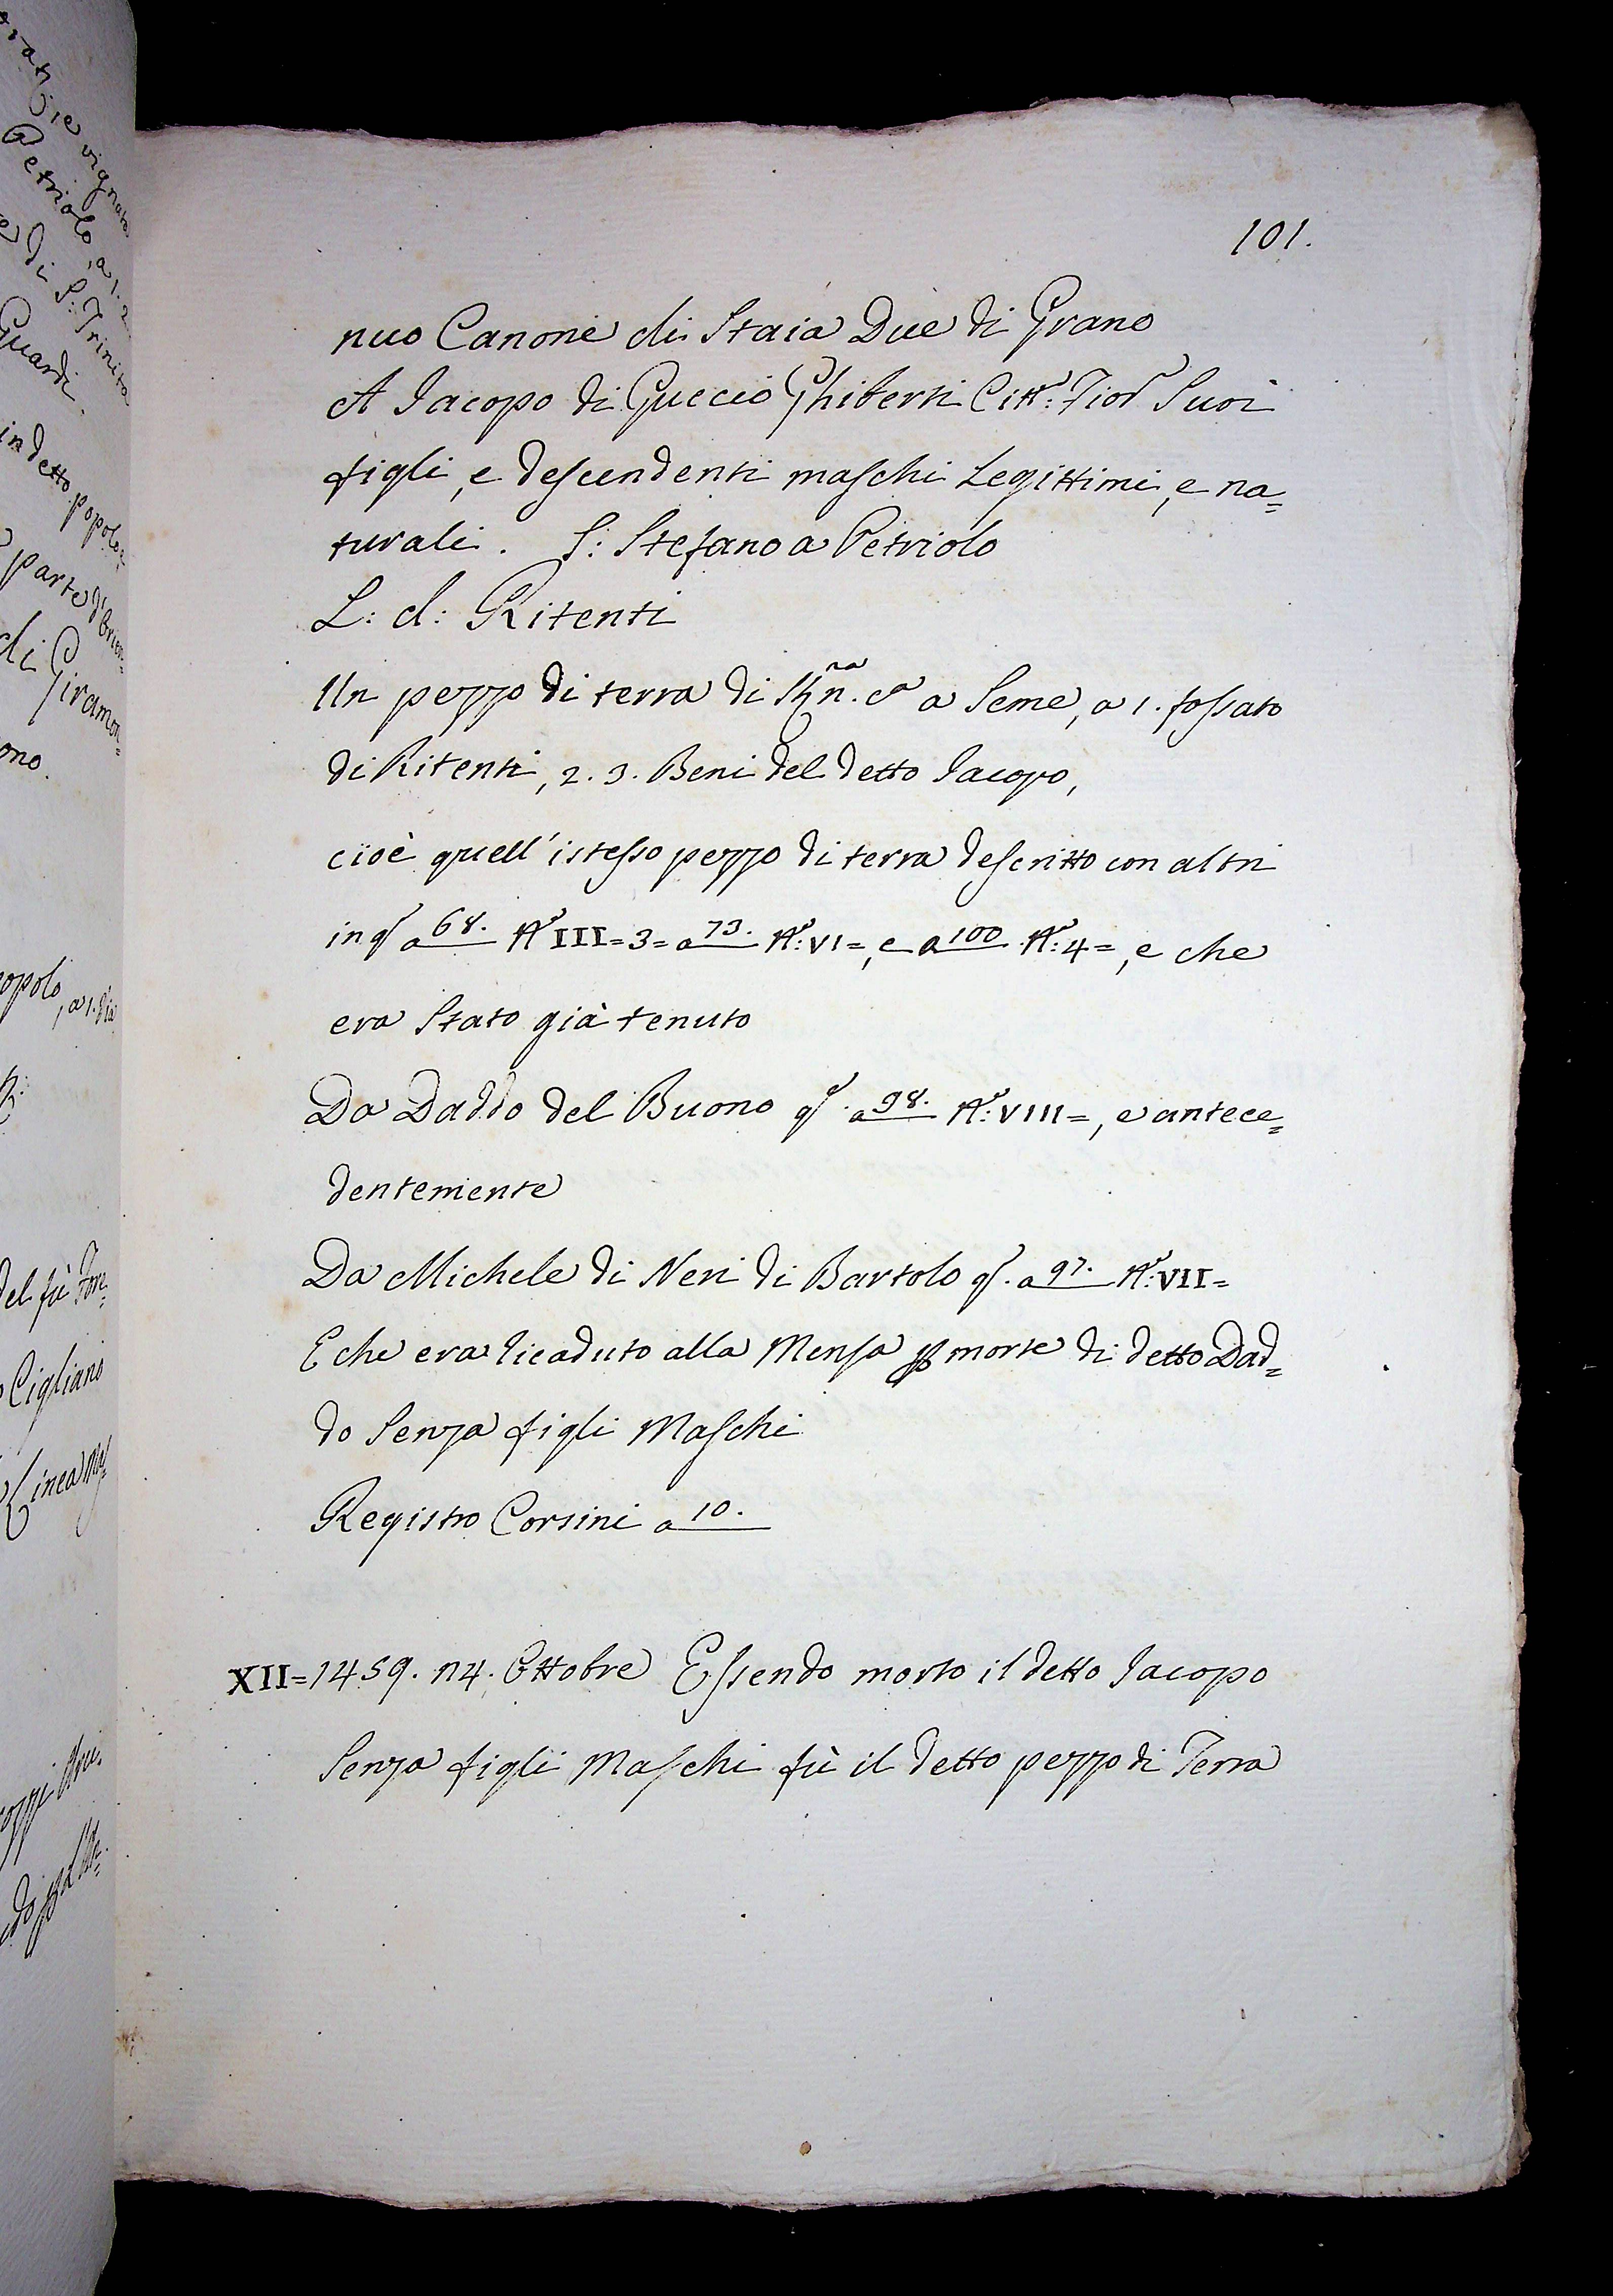 101.
nuo Canone di Staia Due di Grano
A Jacopo di Guccio Ghiberti Citt: Fior Suoi
figli, e descendenti maschi Legittimi, e na=
turali. S: Stefano a Petriolo
L: d: Ritenti
Un pezzo di terra di a Seme, a 1. fossato
di Ritenti, 2. 3. Beni del detto Jacopo,
cioè quell'istesso pezzo di terra descritto con altri
in qo a 68. No III=3= a 73. No: VI=, e a 100 No: 4=, e che
era Stato già tenuto
Da Daddo del Buono qo. a 98. No: VIII=, e antece=
dentemente
Da Michele di Neri di Bartolo qo. a 97. No: VII=
E che era ricaduto alla Mensa p morte di detto Dad=
do Senza figli Maschi
Registro Corsini a 10.
XII=1459. 14. Ottobre Essendo morto il detto Jacopo
Senza figli Maschi fù il detto pezzo di Terra